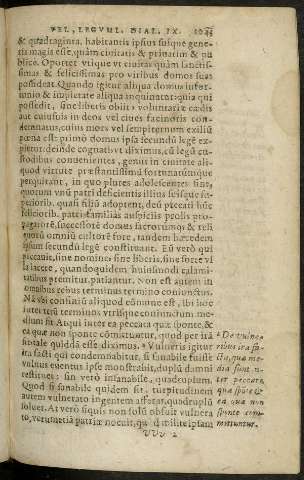 VEL, LEGVM. DIAL. IX. 1045
& quadraginta, habitantis ipsius suique gene-
ris magis esse, quàm ciuitatis & priuatim & pu
blicè. Oportet vtique vt ciuitas quàm sanctis-
simas & felicissimas pro viribus domos suas
possideat. Quando igitur aliqua domus infor-
tunio & impietate aliqua inquinata: quia qui
possedit, sine liberis obiit: voluntariæ cædis
aut cuiusuis in deos vel ciues facinoris con-
demnatus, cuius mors vel sempiternum exiliū
pœna est: primò domus ipsa secundū legē ex-
pietur. deinde cognati, vt diximus, cū legū cu-
stodibus conuenientes, genus in ciuitate ali-
quod virtute præstantissimū fortunatumque
perquirant, in quo plures adolescentes sint,
quorum vnū patri deficientis illius seisque su-
perioribus. quasi filiū adoptent, deū precati hūc
feliciorib. patri familiâs auspiciis prolis pro-
pagatorē, successorē domus sacrorumque & reli
quorū omniū cultorē fore, tandem hæredem
ipsum secundū legē constituant. Eū verò qui
peccauit, sine nomine, sine liberis, sine sorte vl
la iacere, quandoquidem huiusmodi calami-
tatibus premitur, patiamur. Non est autem in
omnibus rebus terminus termino coniunctus.
Nā vbi confiniū aliquod cōmune est, ibi hoc
inter terminos vtrisque coniunctum me-
dium sit. At qui inter ea peccata quæ spontè, &
ea quæ non spontè cōmittuntur, quod per irā
sit tale quiddā esse diximus. * Vulneris igitur
ita facti qui condemnabitur, si sanabile fuisse
vulnus euentus ipse monstrabit, duplū damni
restituet: sin verò insanabile, quadruplum.
Quod si sanabile quidem sit, turpitudinem
autem vulnerato ingentem afferat, quadruplū
soluet. At verò siquis non solū obfuit vulnera
to, verumetiā patriæ nocuit, quòd milite ipsam
* De vulne-
ribus ira fa-
ctis, quæ me-
dia sunt in-
ter peccata,
quæ spōte &
ea quæ non
sponte com-
mittuntur.
VVV 2